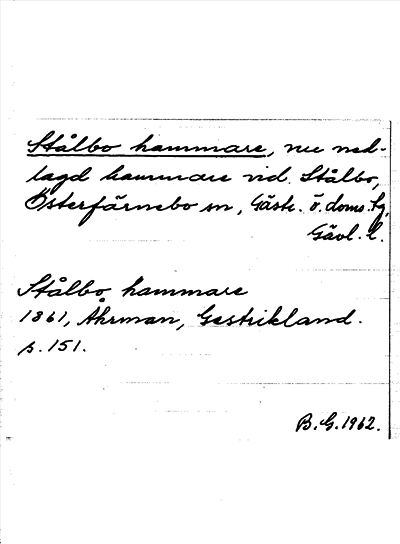 Stålbo hammare, nu ned-
lagd hammare vid Stålbo,
Österfärnebo sn, Gästr. ö. doms. hg,
Gävl. l.
Stålbo hammare
1861, Åhrman, Gestrikland.
s. 151.
B. G. 1962.